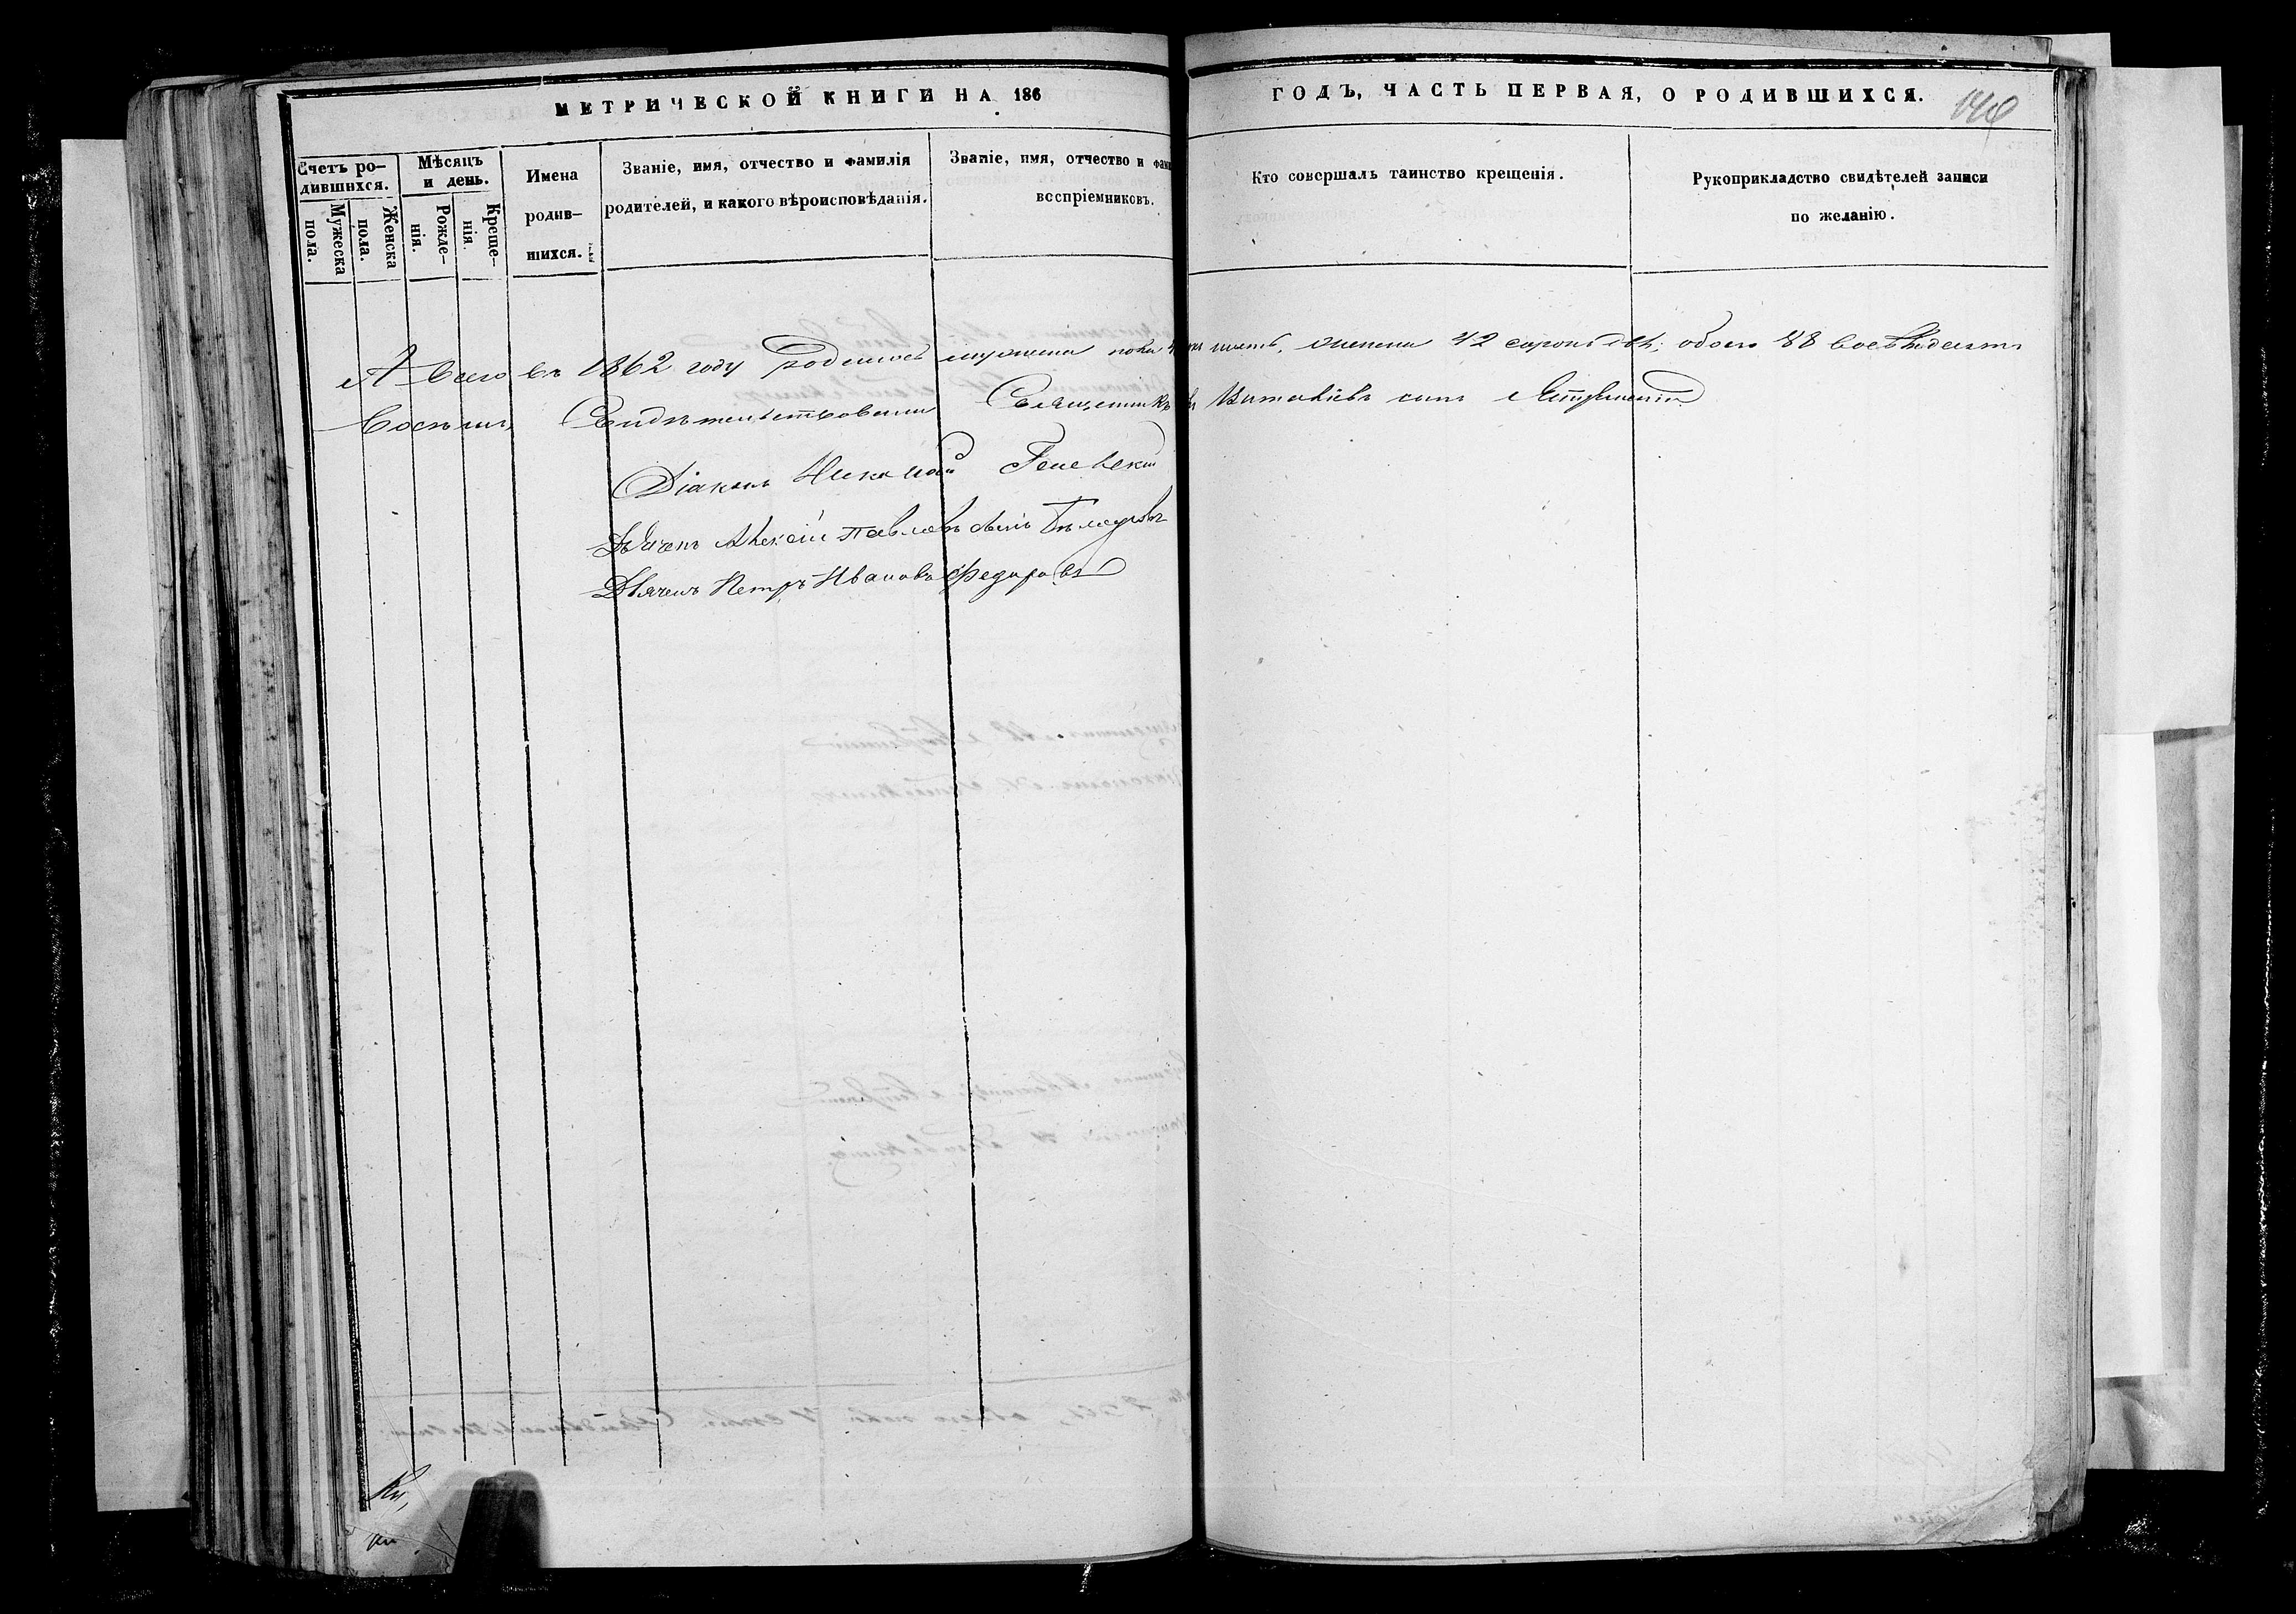 МЕТРИЧЕСКОЙ КНИГИ НА 186
ГОДЪ, ЧАСТЬ ПЕРВАЯ, О РОДИВШИХСЯ.
Счетъ ро-
дившихся.
Мужеска
пола.
Женска
пола.
Мѣсяцъ
и день.
Рожде-
нія.
Креще-
нія.
Имена
родив-
шихся.
Званіе, имя, отчество и фамилія
родителей, и какого вѣроисповѣданія.
Званіе, имя, отчество и фами
воспріемниковъ.
Кто совершалъ таинство крещенія.
Рукоприкладство свидѣтелей записи
по желанію.
А всего въ 1862 году родилось мужеска пола шесть, женска 42 сорокъ двѣ; обоего 88 восемьдесятъ
восемь, Свидѣтельствовали Священникъ
Діаконъ Николай
Дьячекъ Алексѣй Павловъ
Дьячекъ Петръ Ивановъ Федоровъ